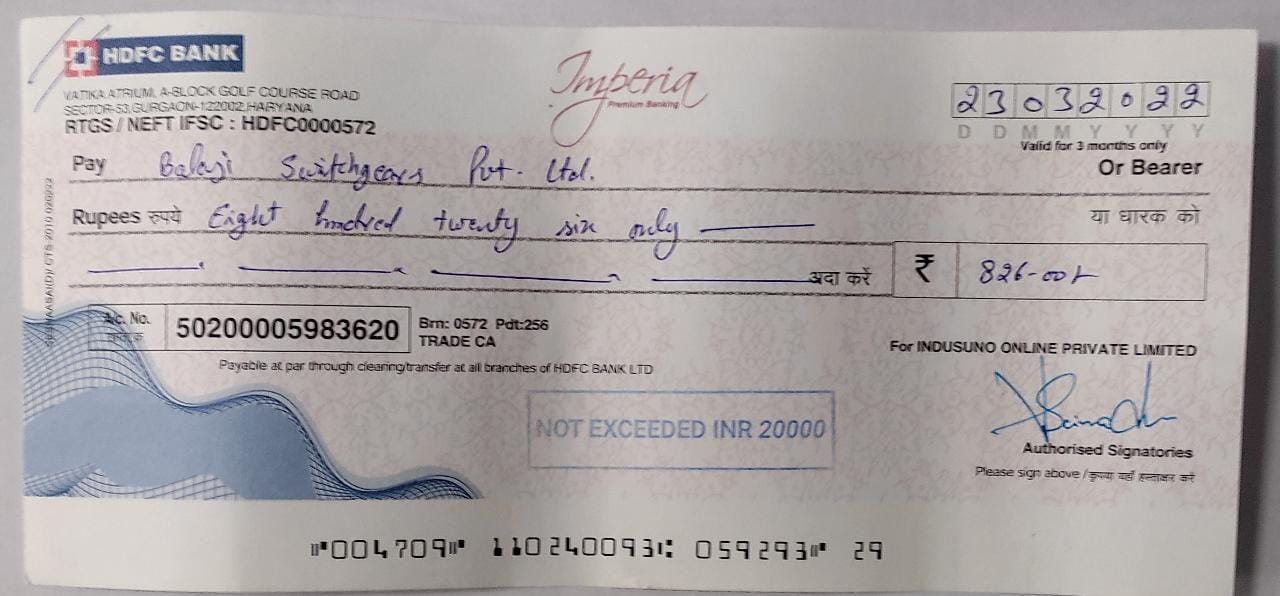 HDFC BANK
Imperia
Premium Banking
VATIKA ATRIUM, A-BLOCK GOLF COURSE ROAD
SECTOR-53, GURGAON-122002, HARYANA
RTGS / NEFT IFSC : HDFC0000572
23032022
D D M M Y Y Y Y
Valid for 3 months only
Pay Balaji Switchgears Pvt. Ltd. Or Bearer
Rupees रुपये Eight hundred twenty six only या धारक को
अदा करें ₹ 826-00/-
A/c. No. 50200005983620 Brn: 0572 Pdt:256
TRADE CA
Payable at par through clearing/transfer at all branches of HDFC BANK LTD
For INDUSUNO ONLINE PRIVATE LIMITED
NOT EXCEEDED INR 20000
Authorised Signatories
Please sign above / कृपया यहाँ हस्ताक्षर करें
⑈004709⑈ 110240093⑆ 059293⑈ 29